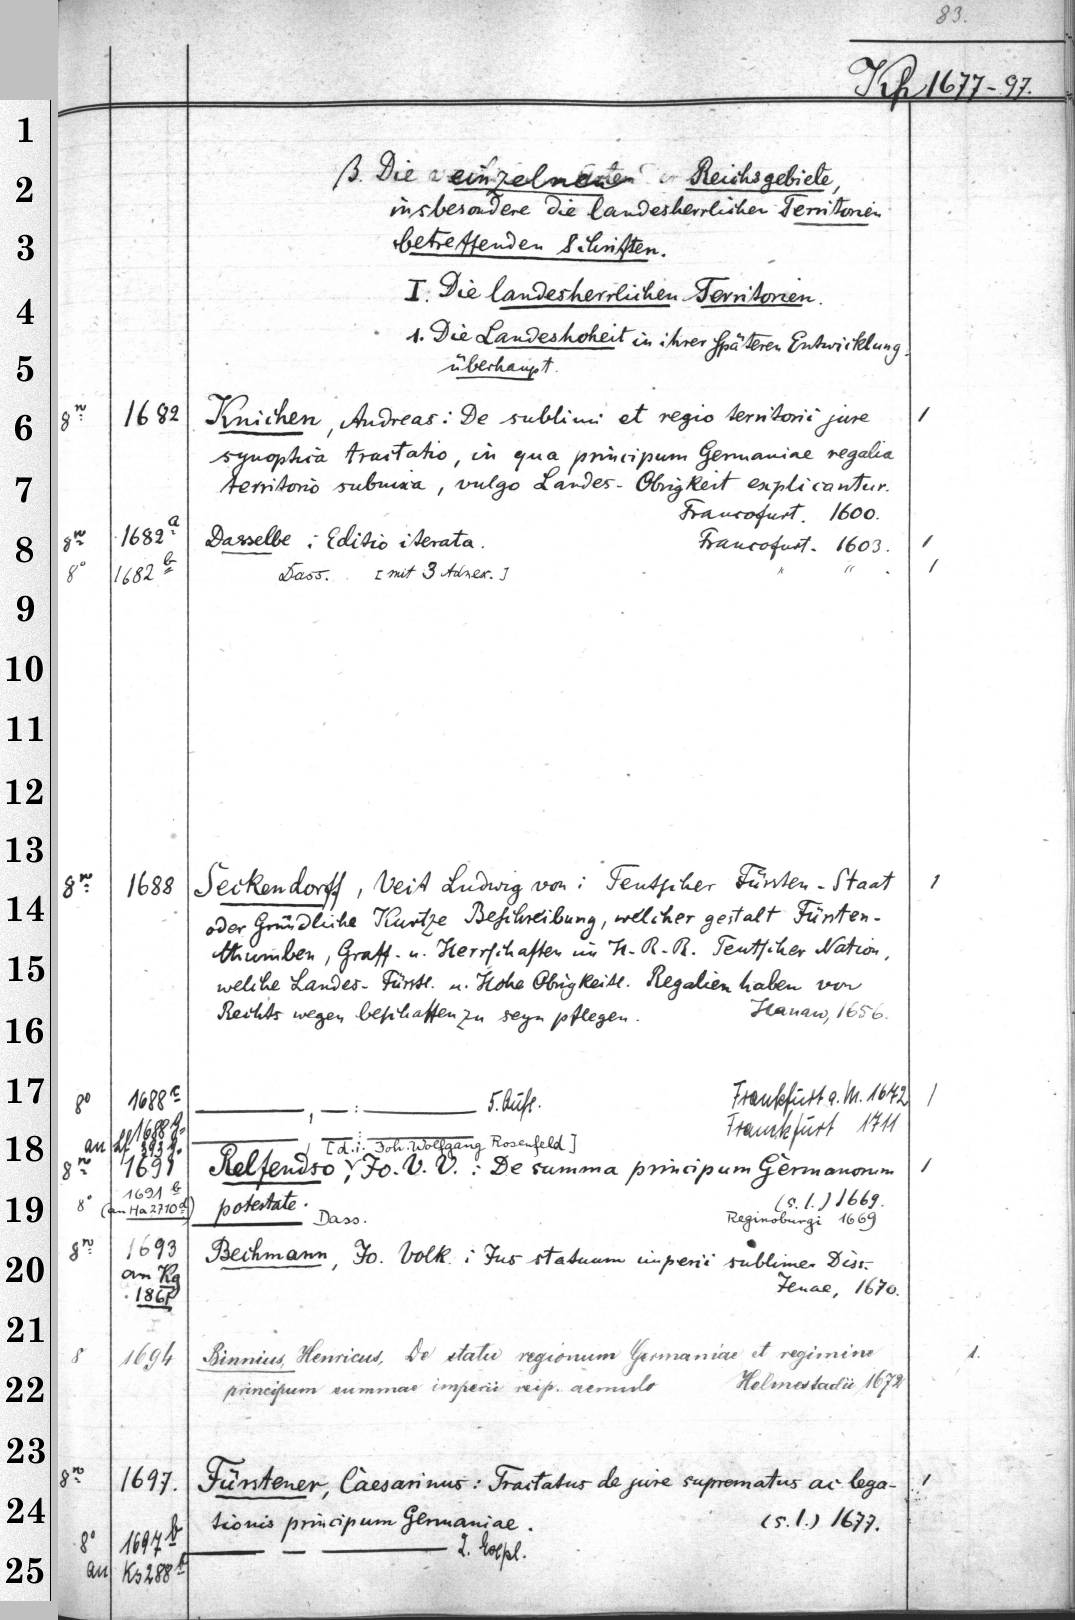 83.
Kh 1677-97.
β. Die einzelnen Reichsgebiete,
insbesondere die landesherrlichen Territorien
betreffenden Schriften.
I. Die landesherrlichen Territorien.
1. Die Landeshoheit in ihrer späteren Entwicklung
überhaupt.
8º 1682 Knichen, Andreas: De sublimi et regio territorii jure 1
synoptica tractatio, in qua principum Germaniae regalia
territorio subnixa, vulgo Landes-Obrigkeit explicantur.
Francofurt. 1600.
8º 1682a Dasselbe: Editio iterata. Francofurt. 1603. 1
8º 1682b Dass. [mit 3 Adnex.] " " . 1
8º 1688 Seckendorff, Veit Ludwig von: Teutscher Fürsten-Staat 1
oder Gründliche Kurtze Beschreibung, welcher gestalt Fürsten-
thümben, Graff- u. Herrschafften im H. R. R. Teutscher Nation,
welche Landes-Fürstl. u. Hohe Obrigkeitl. Regalien haben von
Rechts wegen beschaffen zu seyn pflegen. Hanaw, 1656.
8º 1688c ——, — : —— 5. Aufl. Frankfurt a./M. 1672 1
1688 ——, — : —— Franckfurt 1711
an 393
[d. i. Joh. Wolfgang Rosenfeld]
8º 1691 Relfendso, Jo. V. V.: De summa principum Germanorum 1
potestate. (s. l.) 1669.
8º 1691b (an Ha 2710) —— Dass. Reginoburgi 1669
8º 1693 Bechmann, Jo. Volk.: Jus statuum imperii sublime. Diss.
an Kg 1861 Jenae, 1670.
8 1694 Binnius, Henricus, De statu regionum Germaniae et regimine 1.
principum summae imperii reip. aemulo Helmestadii, 1672
8º 1697. Fürstener, Caesarinus: Tractatus de jure suprematus ac lega- 1
tionis principum Germaniae. (s. l.) 1677.
8º 1697b —— — —— 2. Expl.
an Ks 288
1
2
3
4
5
6
7
8
9
10
11
12
13
14
15
16
17
18
19
20
21
22
23
24
25